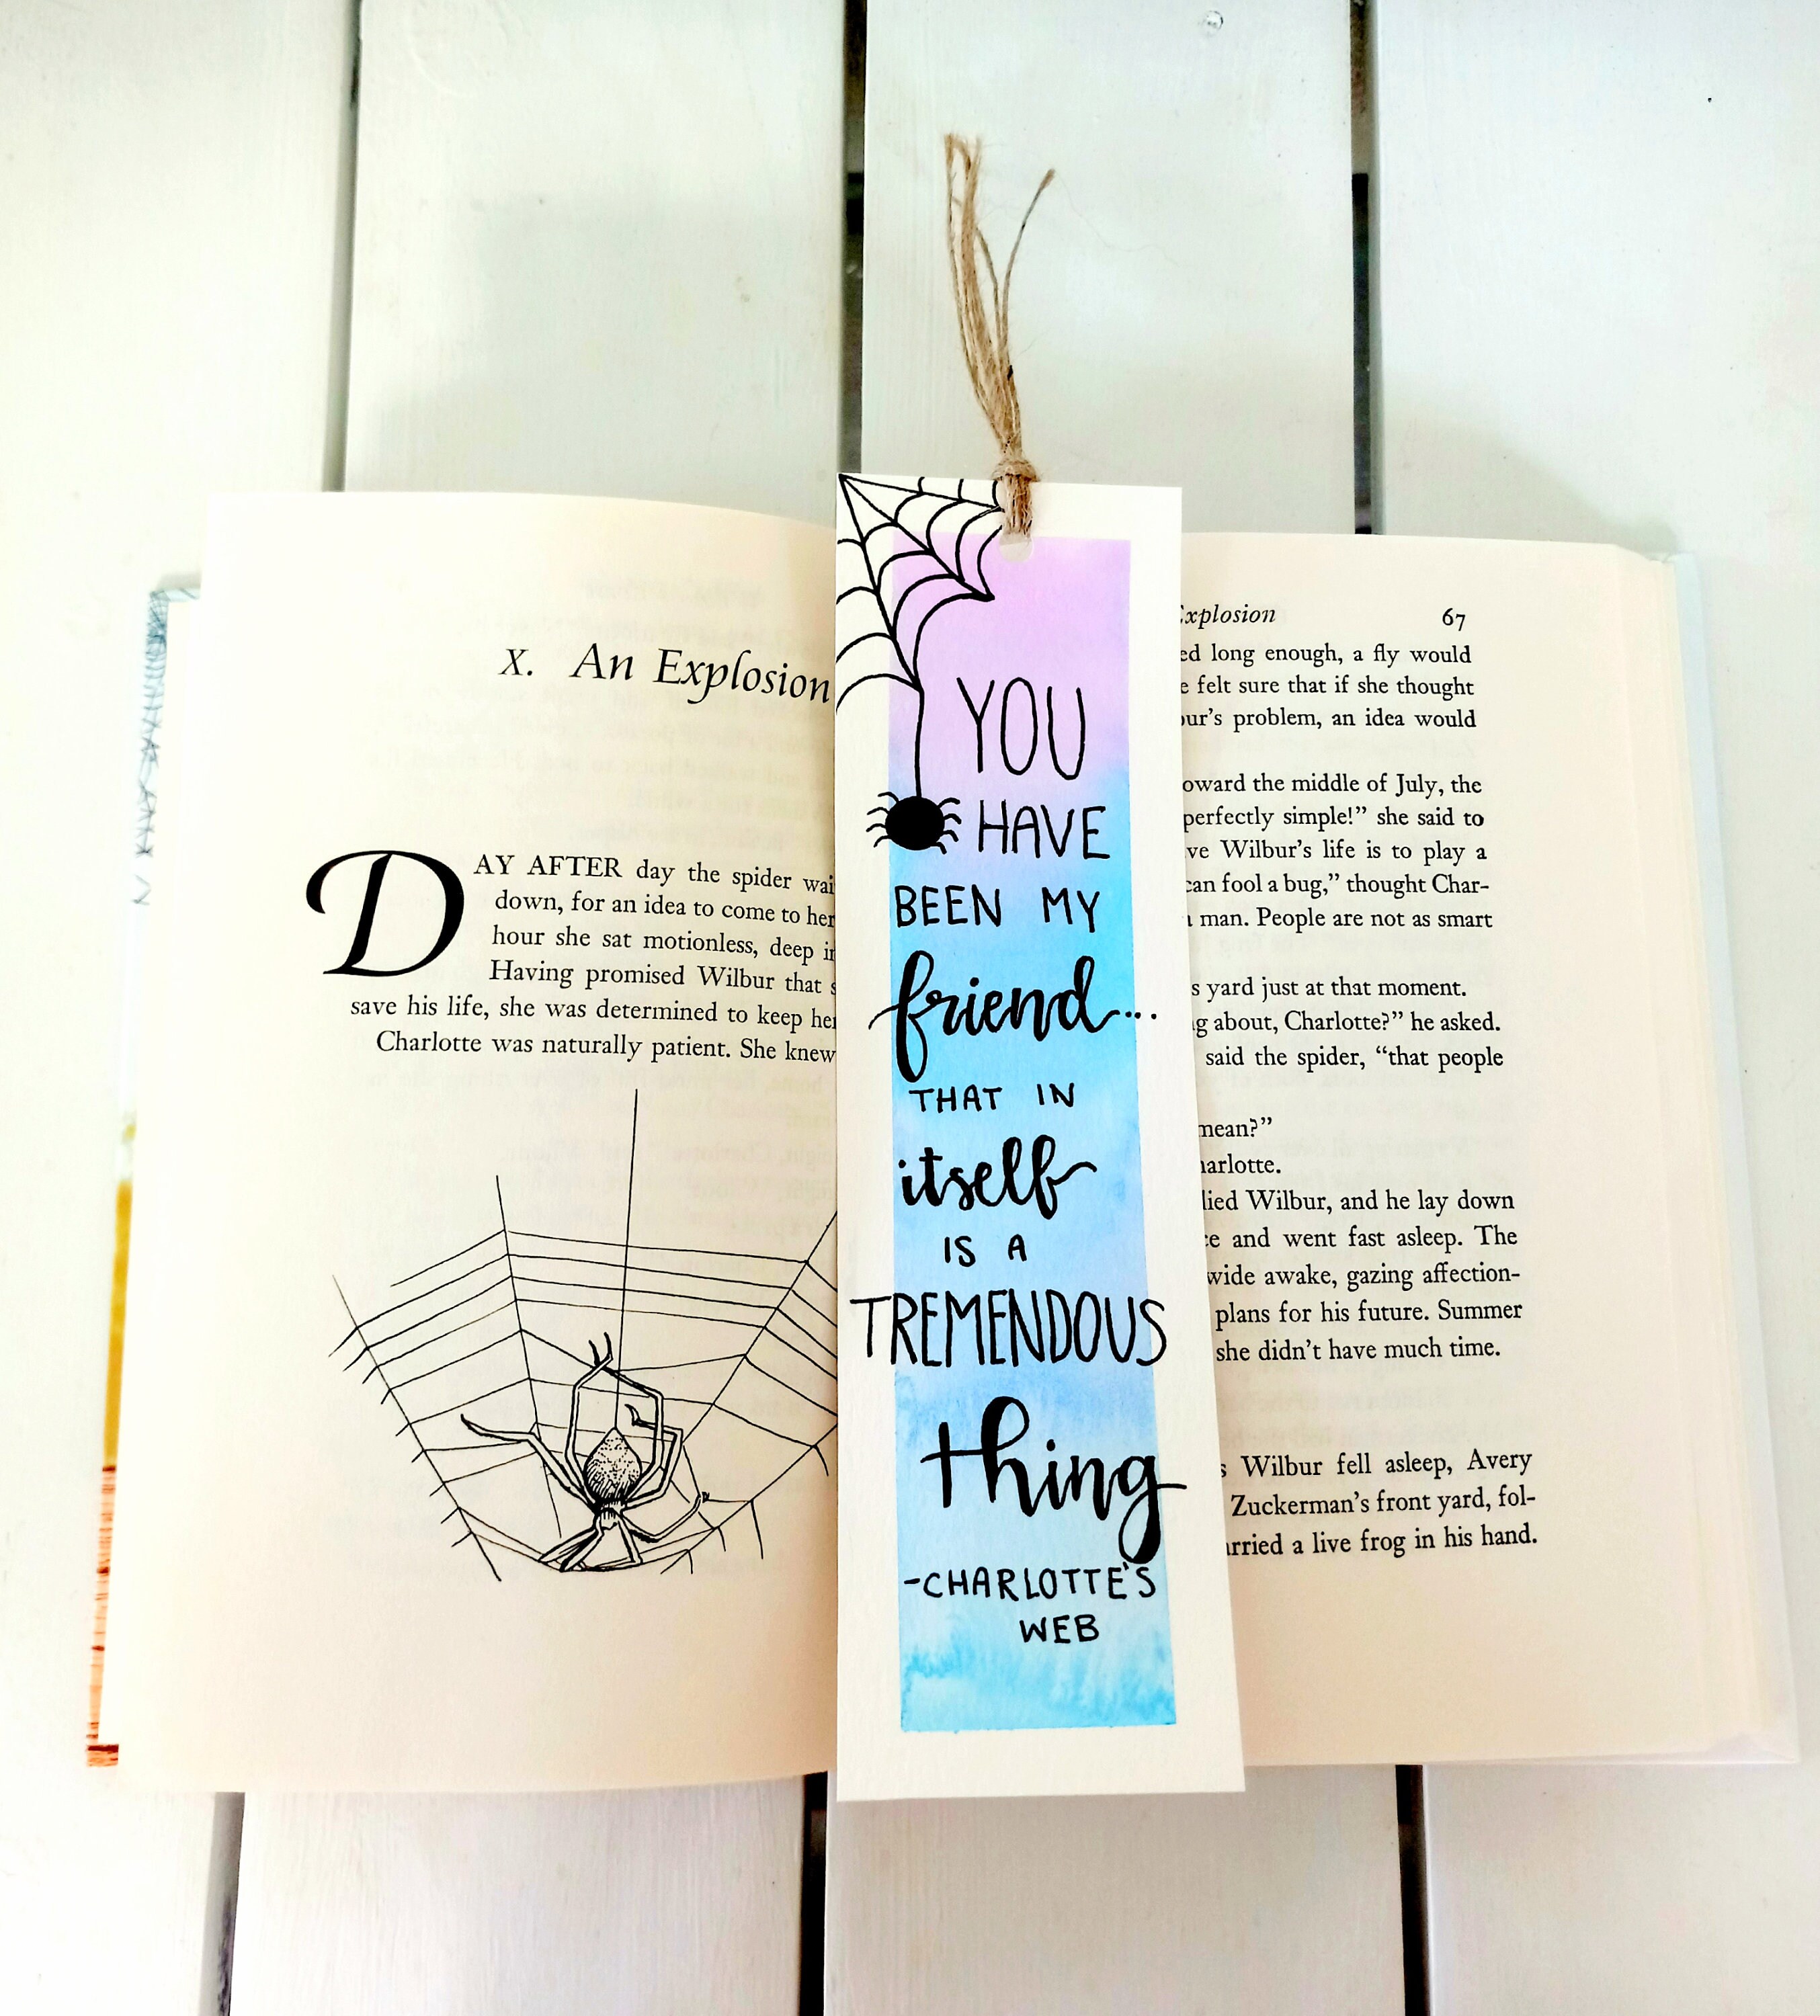 X. An Explosion
DAY AFTER day the spider
down, for an idea to come to her
hour she sat motionless, deep
Having promised Wilbur that
save his life, she was determined to keep
Charlotte was naturally patient. She knew
YOU
HAVE
BEEN MY
friend...
THAT IN
itself
IS A
TREMENDOUS
thing
-CHARLOTTE'S
WEB
Explosion 67
long enough, a fly would
felt sure that if she thought
problem, an idea would
toward the middle of July, the
perfectly simple!” she said to
Wilbur’s life is to play a
can fool a bug,” thought Char-
man. People are not as smart
yard just at that moment.
about, Charlotte?” he asked.
said the spider, “that people
mean?”
Charlotte.
Wilbur, and he lay down
and went fast asleep. The
wide awake, gazing affection-
plans for his future. Summer
she didn’t have much time.
Wilbur fell asleep, Avery
Zuckerman’s front yard, fol-
a live frog in his hand.